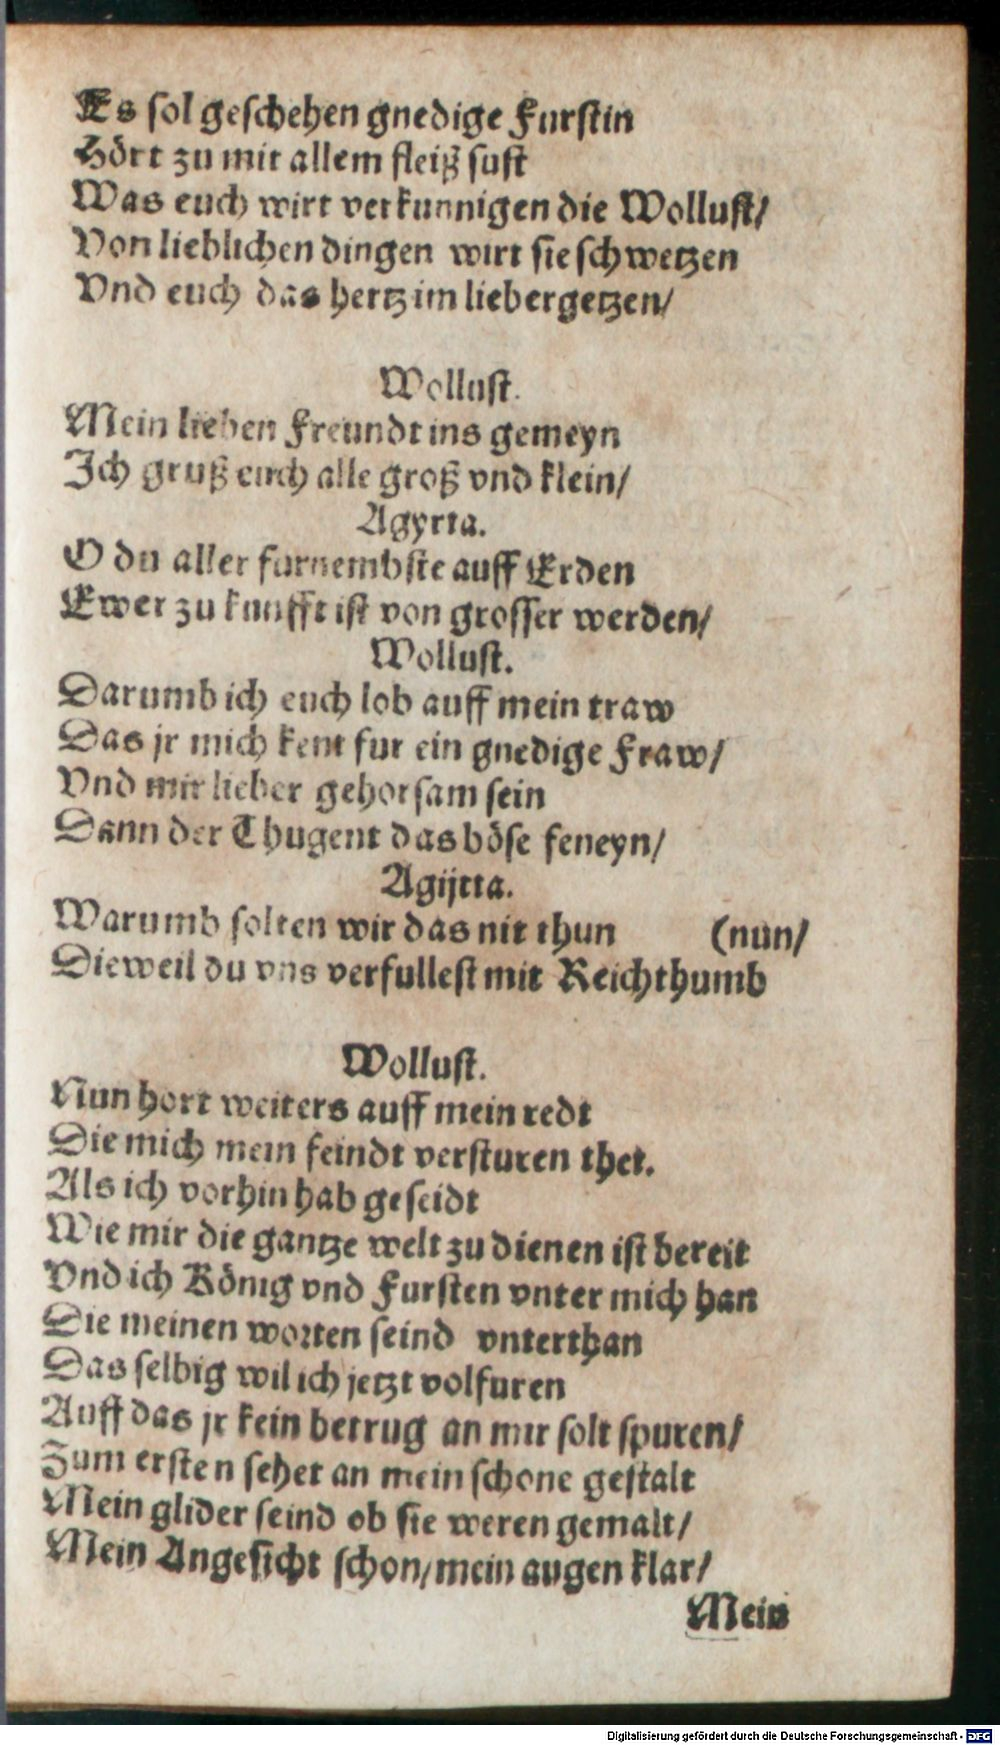 Es sol geschehen gnedige Furstin
Hört zu mit allem fleiß sust
Was euch wirt verkunnigen die Wollust/
Von lieblichen dingen wirt sie schwetzen
Vnd euch das hertz im lieb ergetzen/
Wollust.
Mein lieben Freundt ins gemeyn
Ich gruß euch alle groß vnd klein/
Agyrta.
O du aller furnembste auff Erden
Ewer zu kunfft ist von grosser werden/
Wollust.
Darumb ich euch lob auff mein traw
Das jr mich kent fur ein gnedige Fraw/
Vnd mir lieber gehorsam sein
Dann der Thugent das böse feneyn/
Agijrta.
Warumb solten wir das nit thun (nun/
Dieweil du vns verfullest mit Reichthumb
Wollust.
Nun hort weiters auff mein redt
Die mich mein feindt versturen thet.
Als ich vorhin hab geseidt
Wie mir die gantze welt zu dienen ist bereit
Vnd ich König vnd Fursten vnter mich han
Die meinen worten seind vnterthan
Das selbig wil ich jetzt volfuren
Auff das jr kein betrug an mir solt spuren/
Zum ersten sehet an mein schone gestalt
Mein glider seind ob sie weren gemalt/
Mein Angesicht schon/mein augen klar/
Mein
Digitalisierung gefördert durch die Deutsche Forschungsgemeinschaft - DFG